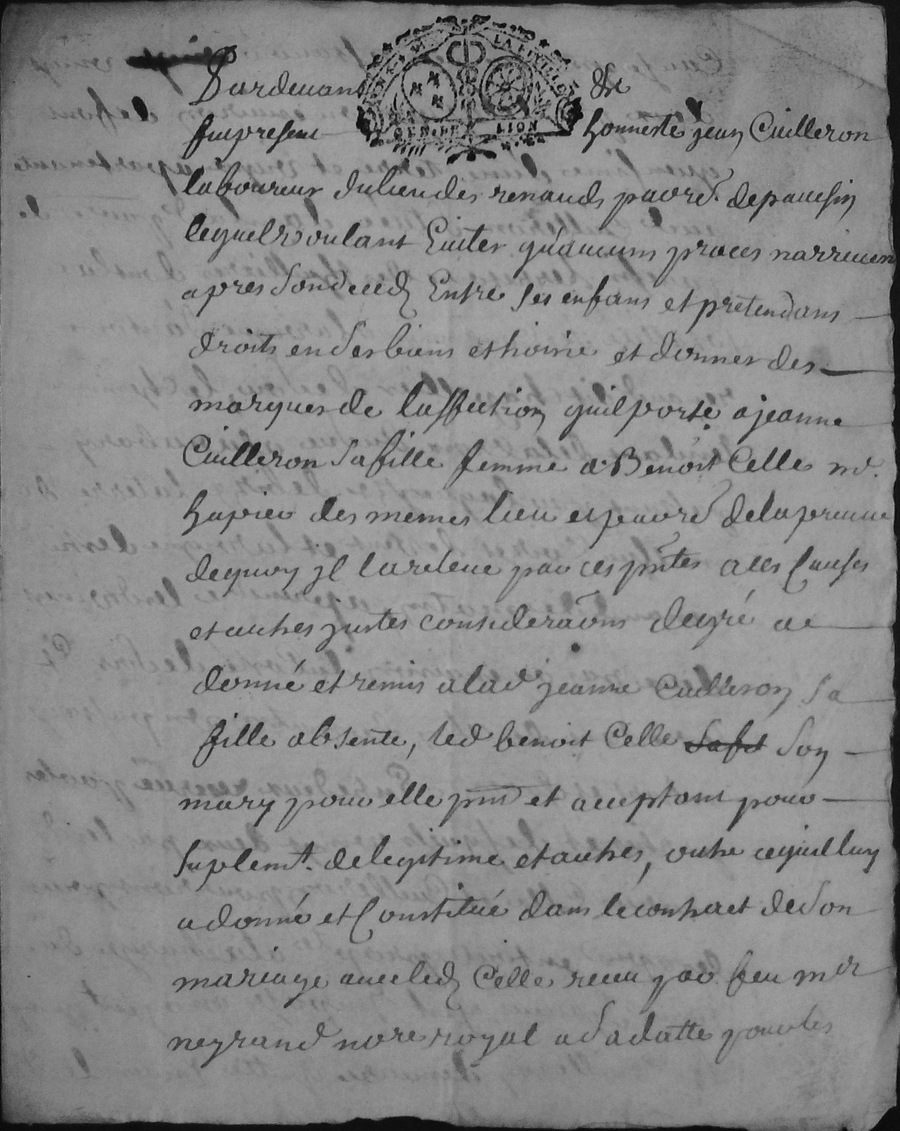 Pardevant &c
fut present honneste jean Cuilleron
laboureur du lieu des renauds parre. de
lequel voulant Eviter qu'aucuns proces narrivent
apres son deced Entre ses enfans et pretendans
droits en ses biens et hoirie et donner des
marques de laffection quil porte a jeanne
Cuilleron sa fille femme a Benoist Celle me.
des memes lieu et parre de la
dequoy jl la releve par ces pntes a ces Causes
et autres justes consideraons de gré a
donné et remis a lad jeanne Cuilleron sa
fille absente, led benoist Celle son
mary pour elle pnt et acceptant pour
suplemt. de legitime et autres, outre ce quil luy
a donné et Constitué dans le contract de son
mariage avec led Celle receu par feu mer
neyrand nore royal a sa datte pour les